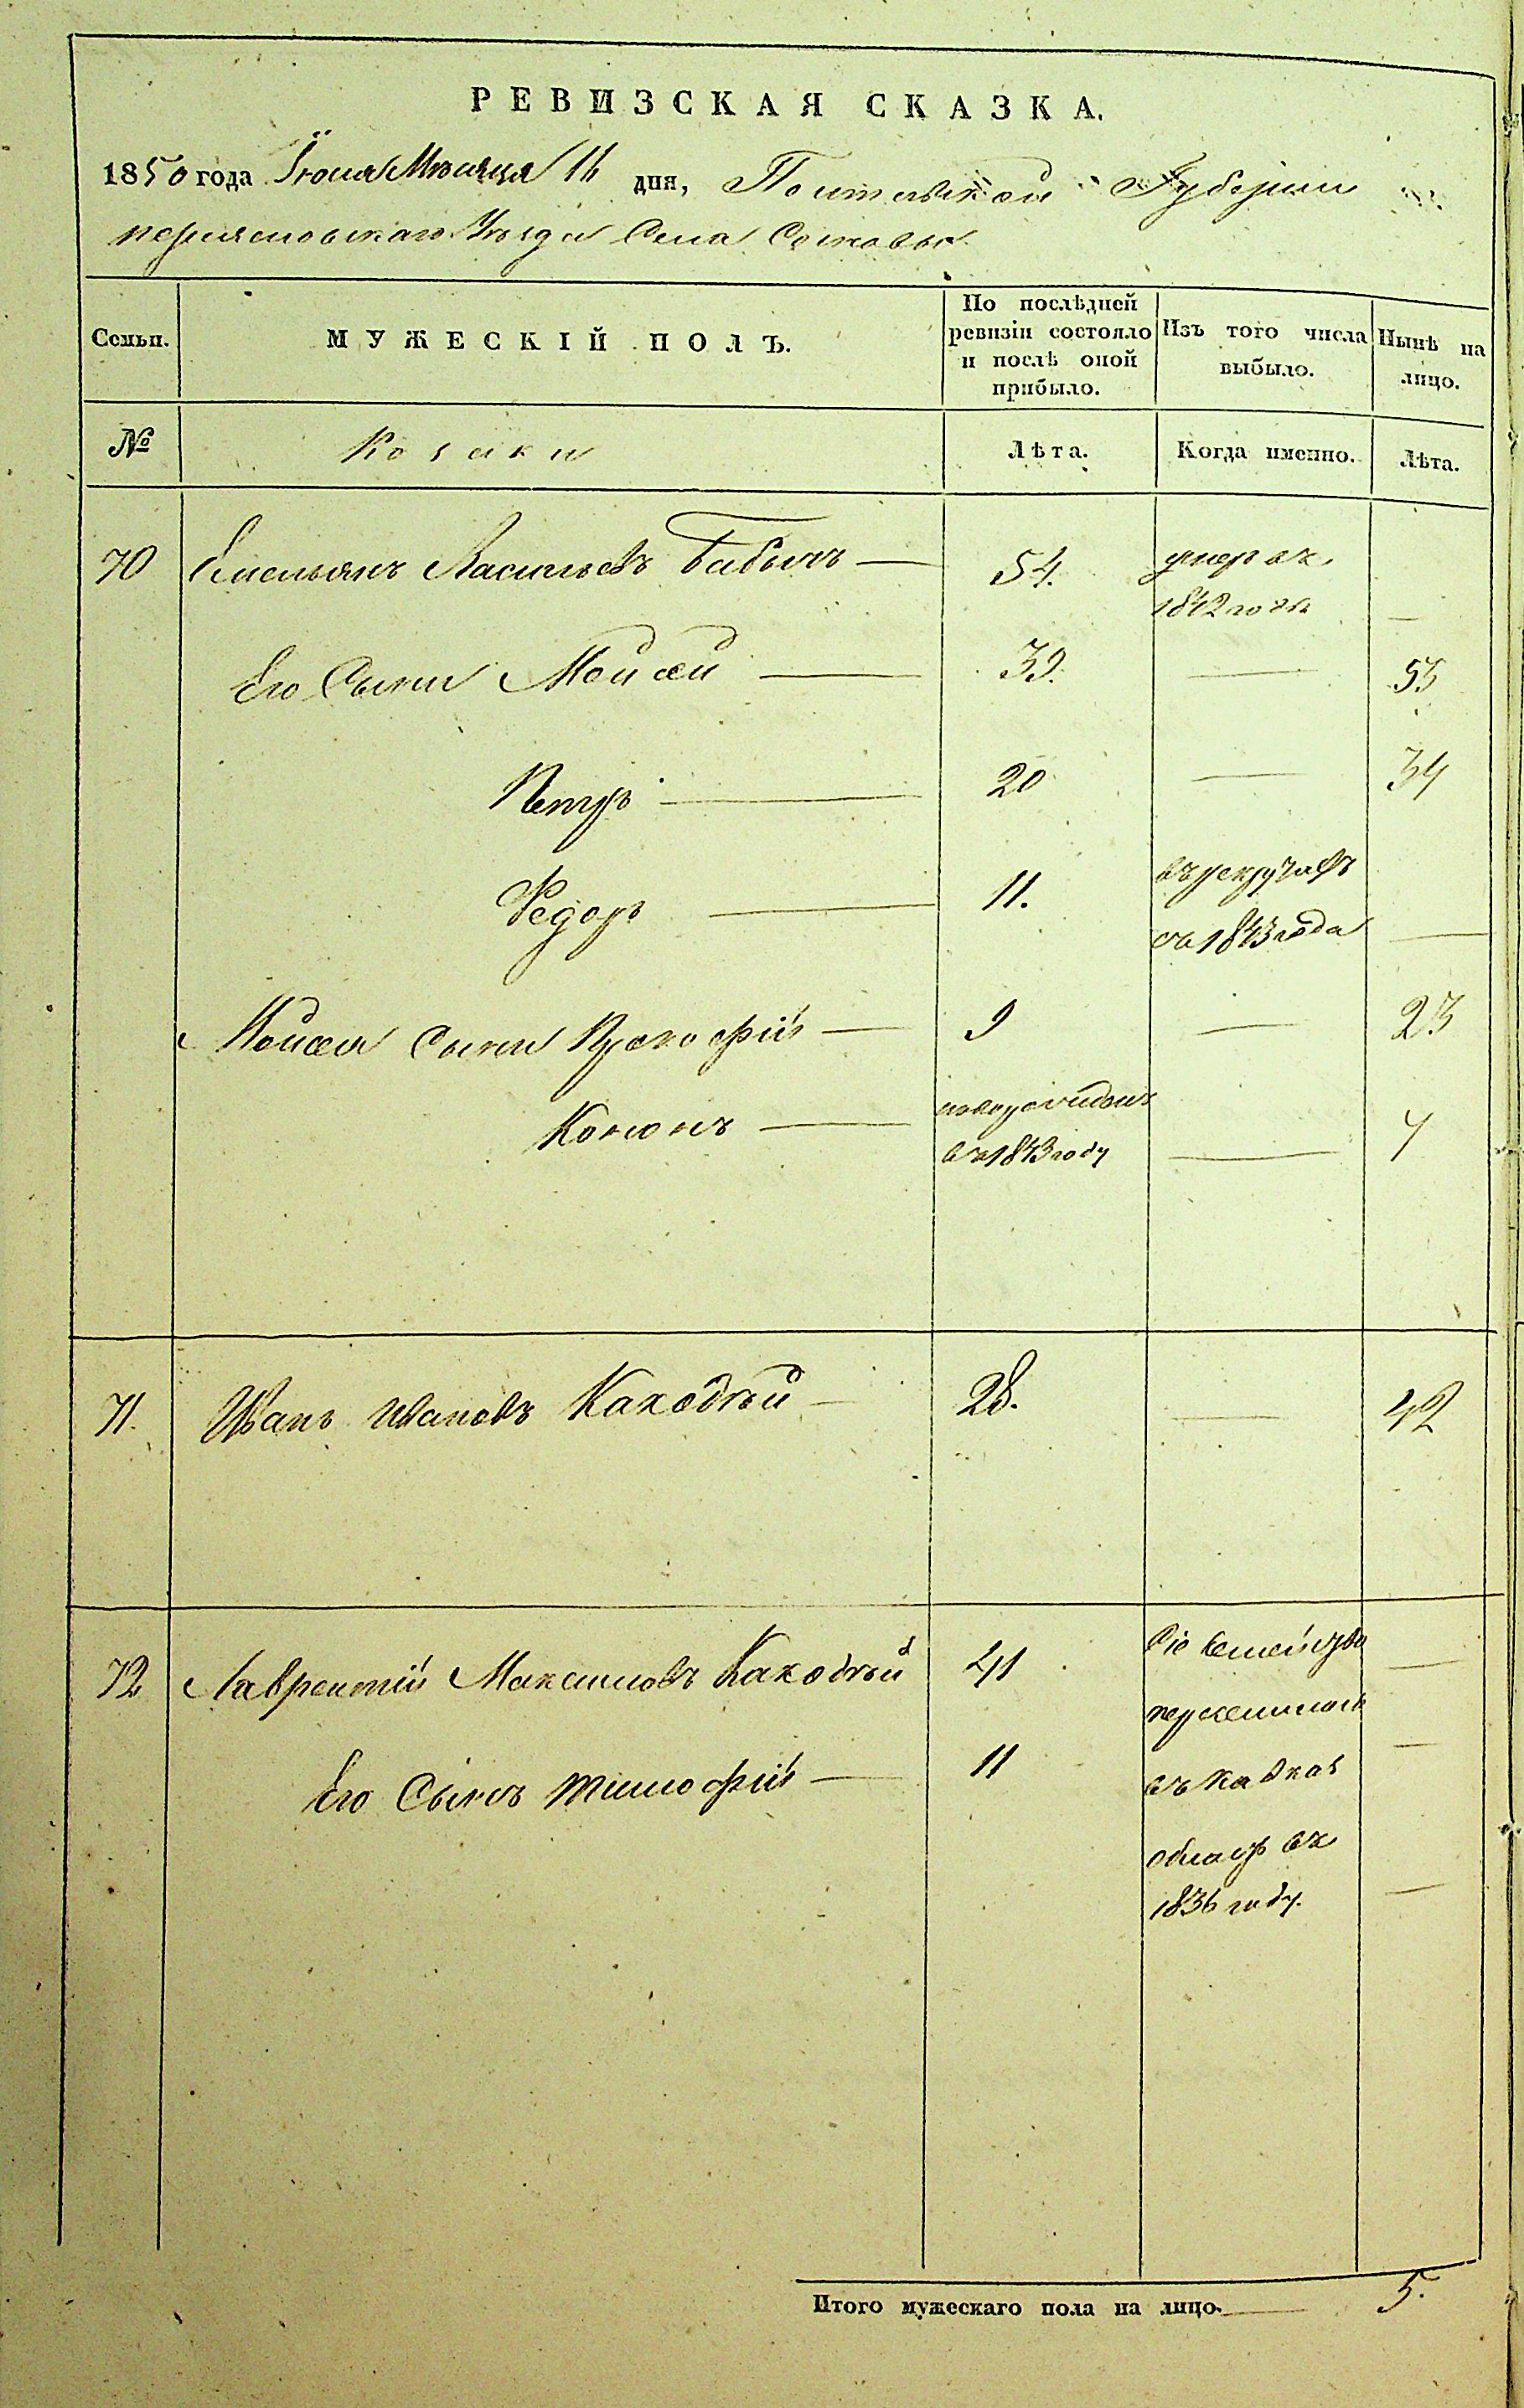 РЕВИЗСКАЯ СКАЗКА.
1850 года Іюня Мѣсяца 16 дня, Полтавской Губерніи
переяславскаго Уѣзда Села Сошкова
Семьи.
МУЖЕСКІЙ ПОЛЪ.
По послѣдней ревизіи состояло и послѣ оной прибыло.
Изъ того числа выбыло.
Нынѣ на лицо.
№
Козаки
Лѣта.
Когда именно.
Лѣта.
70 Емельянъ Васильевъ Бабычъ — 54. умеръ въ
1842 года —
Его Сыни Мойсей — 39. — 53
Петръ — 20 — 34
Федоръ — 11. въ рекрутахъ
съ 1843 года —
Мойсея Сыни Прокофій — 9 — 23
Кононъ — новорожденъ
въ 1843 году — 7
71. Иванъ Ивановъ Каходкый — 28. — 42
72 Лаврентій Максимовъ Каходкый 41 Сіе Семейство —
переселилось
Его Сынъ Тимофій — 11 —
въ Кавказ
област въ
1836 году. —
Итого мужескаго пола на лицо. — 5.